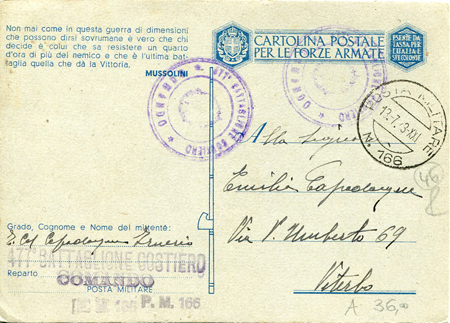 Non mai come in questa guerra di dimensioni
che possono dirsi sovrumane è vero che chi
decide è colui che sa resistere un quarto
d'ora di più del nemico e che è l'ultima bat-
taglia quella che dà la Vittoria.
MUSSOLINI
CARTOLINA POSTALE
PER LE FORZE ARMATE
ESENTE DA
TASSA PER
L'ITALIA E
SUE COLONIE
477° BATTAGLIONE COSTIERO
COMANDO
477° BATTAGLIONE COSTIERO
COMANDO
POSTA MILITARE
N. 166
Alla
Emilia
Via V. Umberto 69
Viterbo
A 36,00
Grado, Cognome e Nome del mittente:
477° BATTAGLIONE COSTIERO
Reparto
COMANDO
POSTA MILITARE
P. M. 166